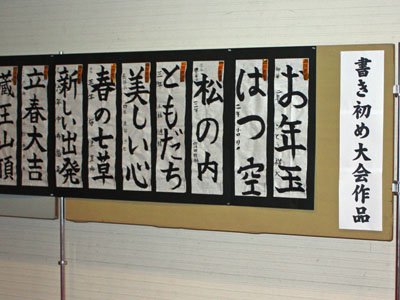 書き初め大会作品
お年玉
はつ空
松の内
ともだち
美しい心
春の七草
新しい出発
立春大吉
蔵王山頂